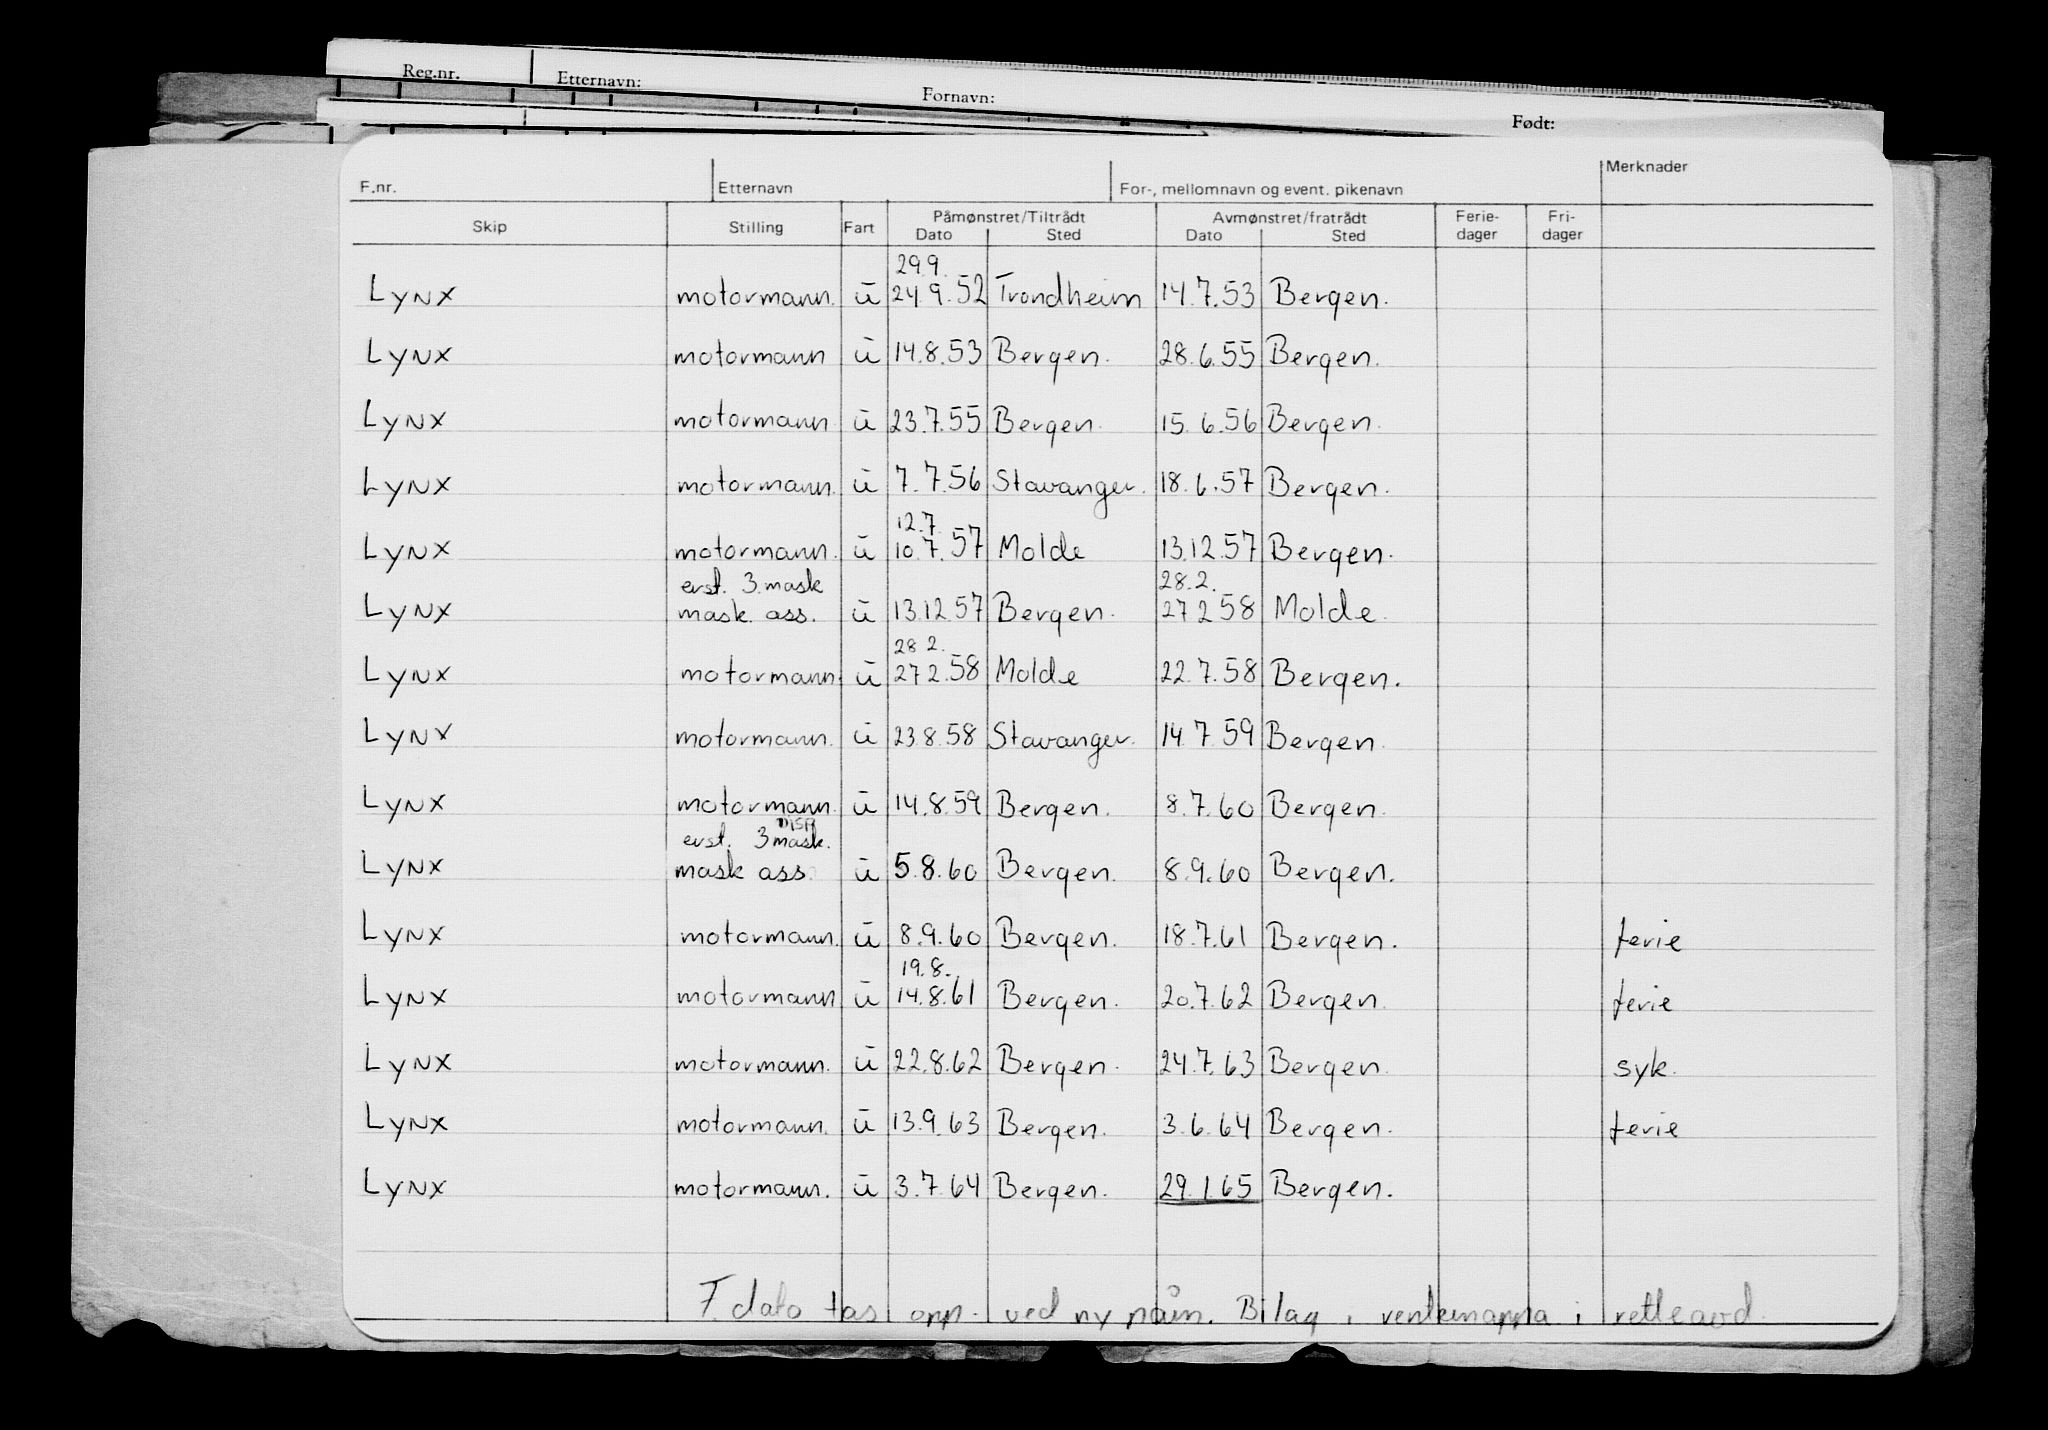 Reg.nr. Etternavn: Fornavn: Født:
F.nr. Etternavn For-, mellomnavn og event. pikenavn Merknader
Skip Stilling Fart Påmønstret/Tiltrådt Avmønstret/fratrådt Ferie- Fri-
Dato Sted Dato Sted dager dager
29.9.
Lynx motormann. u 24.9.52 Trondheim 14.7.53 Bergen.
Lynx motormann u 14.8.53 Bergen. 28.6.55 Bergen.
Lynx motormann u 23.7.55 Bergen. 15.6.56 Bergen.
Lynx motormann. u 7.7.56 Stavanger. 18.6.57 Bergen.
12.7.
Lynx motormann. u 10.7.57 Molde 13.12.57 Bergen.
erst. 3. mask 28.2.
Lynx mask. ass. u 13.12.57 Bergen. 27 2 58 Molde.
28 2.
Lynx motormann. u 27 2.58 Molde 22.7.58 Bergen.
Lynx motormann. u 23.8.58 Stavanger. 14 7 59 Bergen.
Lynx motormann. u 14.8.59 Bergen. 8.7.60 Bergen.
erst. 3 mask.
Lynx mask ass. u 5.8.60 Bergen. 8.9.60 Bergen.
Lynx motormann. u 8.9.60 Bergen. 18.7.61 Bergen. ferie
19.8.
Lynx motormann u 14.8.61 Bergen. 20.7.62 Bergen. ferie
Lynx motormann. u 22.8.62 Bergen. 24.7.63 Bergen. syk.
Lynx motormann. u 13.9.63 Bergen. 3.6.64 Bergen. ferie
Lynx motormann. u 3.7.64 Bergen. 29.1.65 Bergen.
F. dato tas opp ved ny påm. Bilag i ventemappa i retteavd.